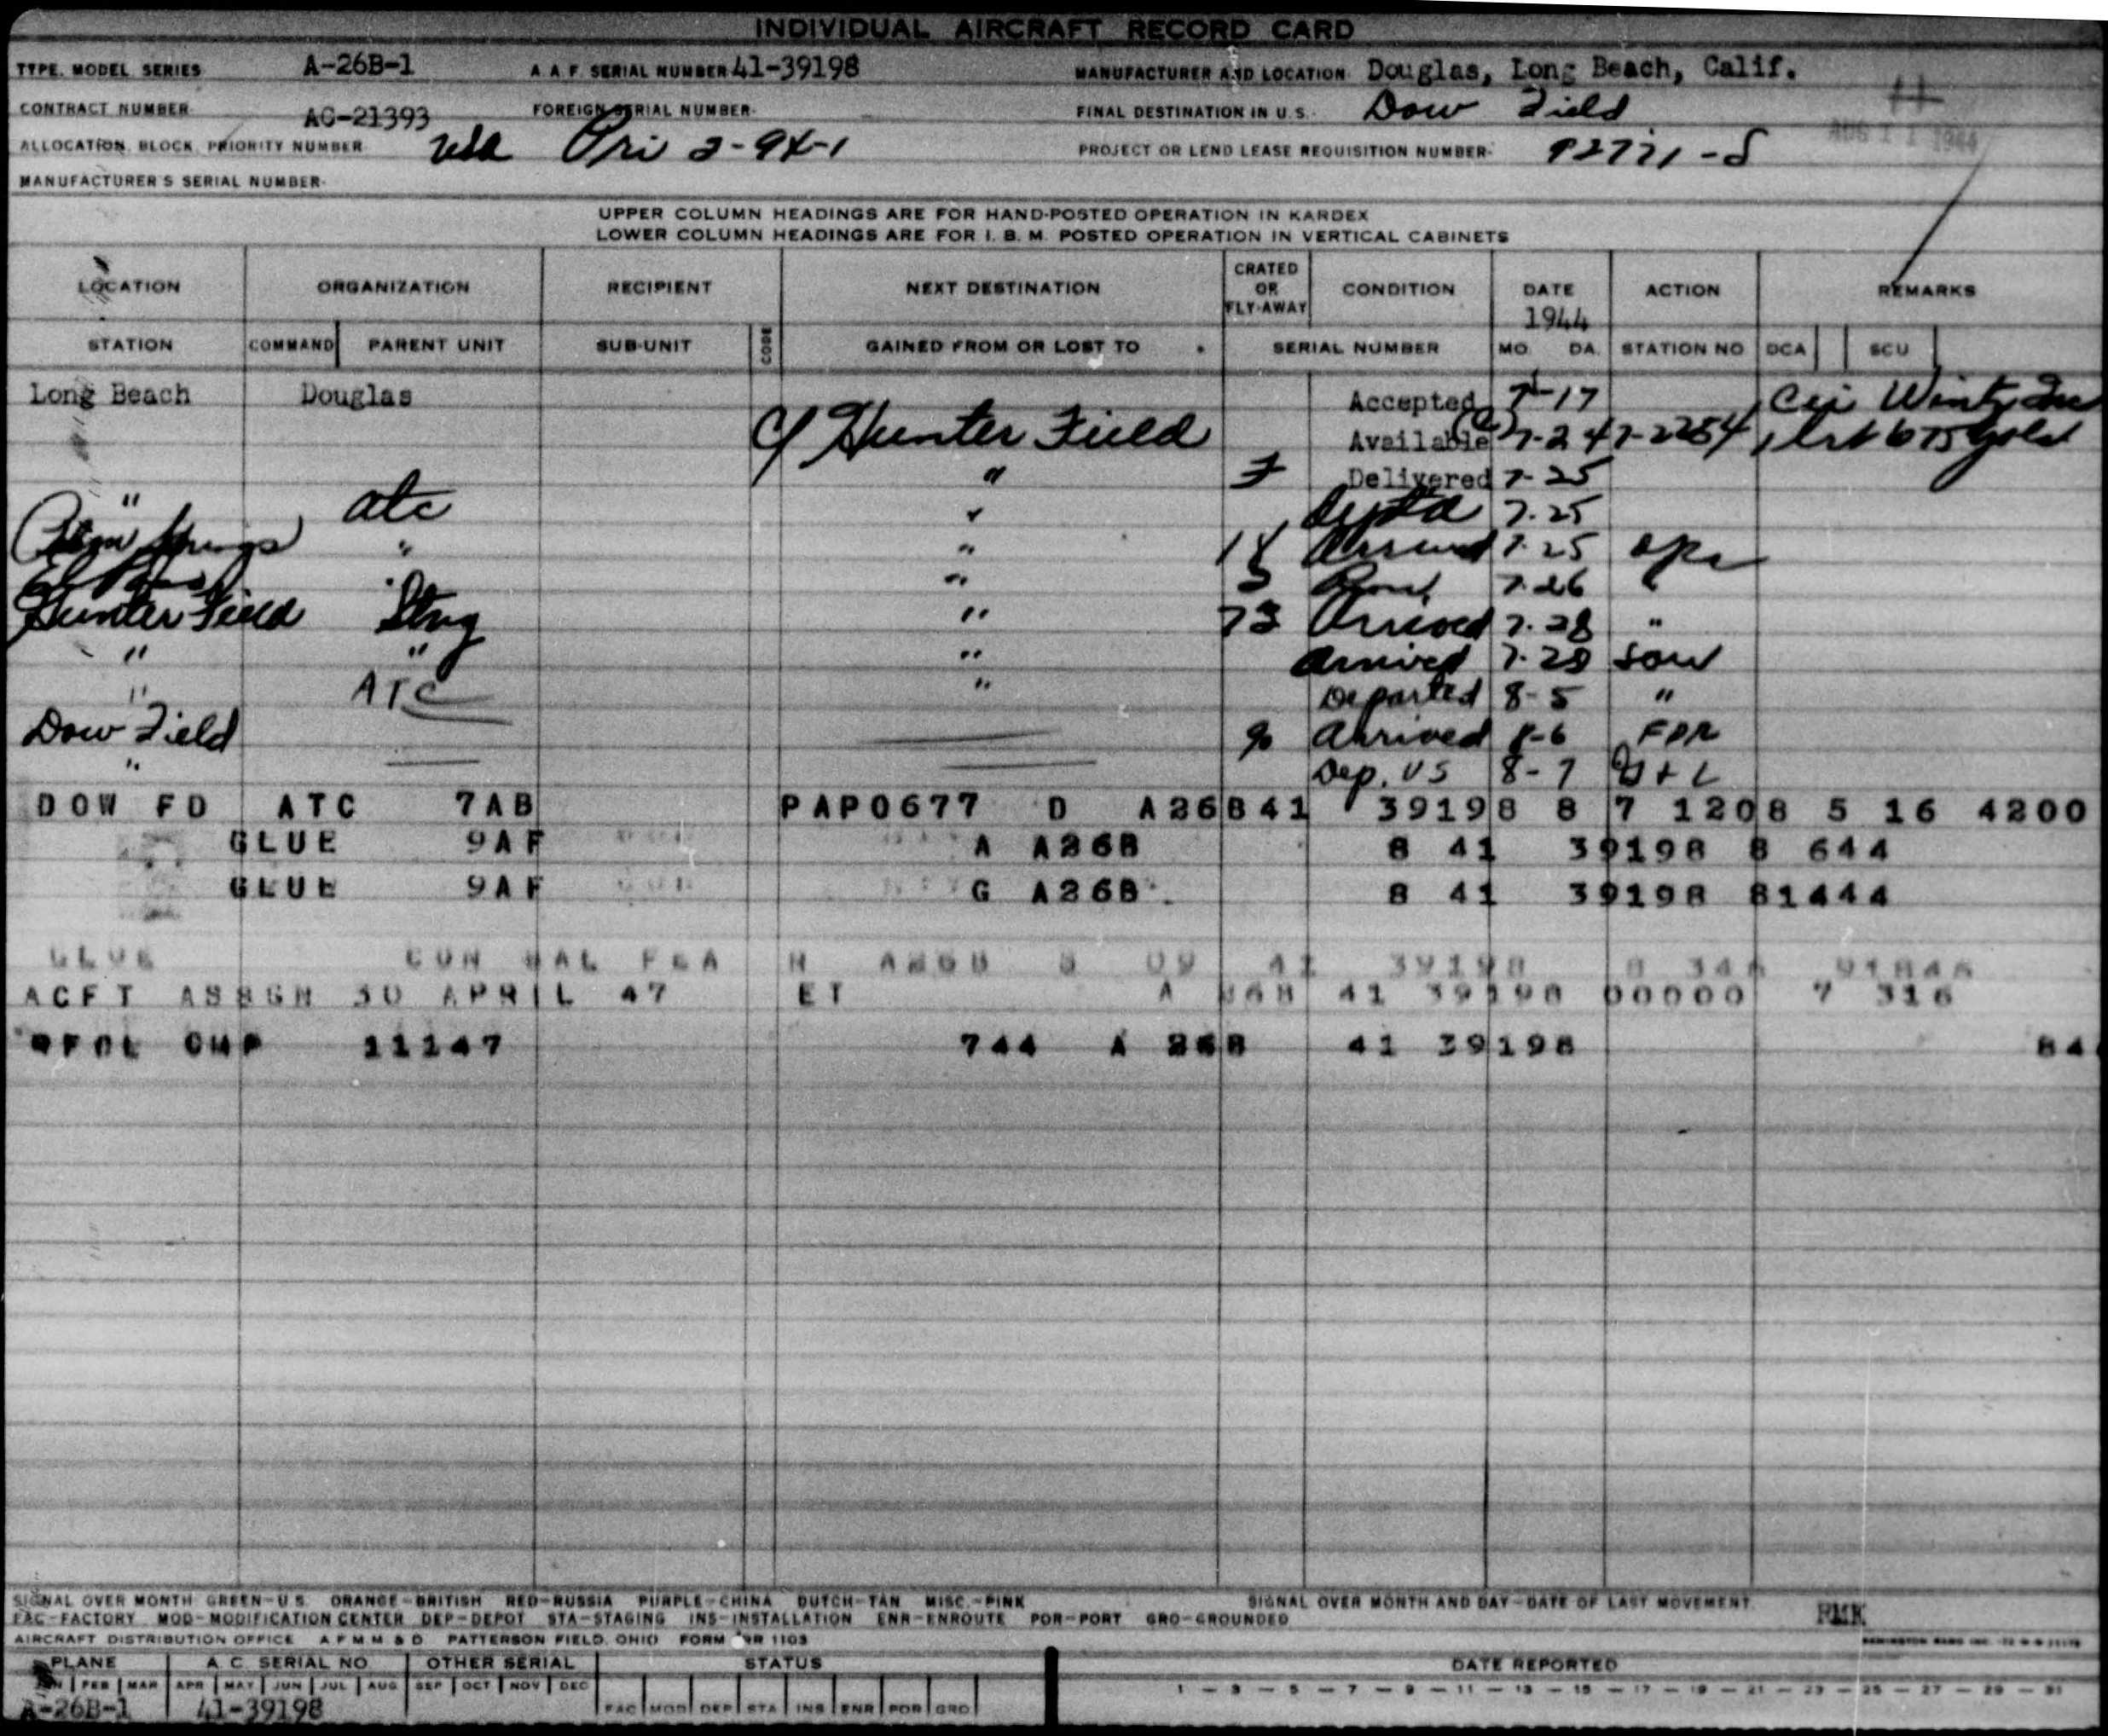 INDIVIDUAL AIRCRAFT RECORD CARD
TYPE, MODEL SERIES A-26B-1 A.A.F. SERIAL NUMBER 41-39198 MANUFACTURER AND LOCATION Douglas, Long Beach, Calif.
CONTRACT NUMBER AC-21393 FOREIGN SERIAL NUMBER- FINAL DESTINATION IN U.S.- Dow Field
ALLOCATION, BLOCK, PRIORITY NUMBER USA Pri 2-94-1 PROJECT OR LEND LEASE REQUISITION NUMBER- 92771-S AUG 11 1944
MANUFACTURER'S SERIAL NUMBER-
UPPER COLUMN HEADINGS ARE FOR HAND-POSTED OPERATION IN KARDEX
LOWER COLUMN HEADINGS ARE FOR I.B.M. POSTED OPERATION IN VERTICAL CABINETS
LOCATION ORGANIZATION RECIPIENT NEXT DESTINATION CRATED OR FLY-AWAY CONDITION DATE 1944 ACTION REMARKS
STATION COMMAND PARENT UNIT SUB-UNIT CODE GAINED FROM OR LOST TO SERIAL NUMBER MO. DA. STATION NO DCA SCU
Long Beach Douglas Accepted 7-17
Hunter Field Available 7-24
" F Delivered 7-25
" atc 7-25
Palm Springs " " Arrived 7-25
" 7-26
Hunter Field " 73 Arrived 7-28 "
" " " Arrived 7-28
" ATC " Departed 8-5 "
Dow Field Arrived 8-6
" Dep. US 8-7
DOW FD ATC 7AB PAP0677 D A26B41 39198 8 7 1208 5 16 4200
GLUE 9AF A A26B 8 41 39198 8 644
GLUE 9AF G A26B 8 41 39198 81444
GLUE CON SAL A26B 41 39198
ACFT ASSGN 30 APRIL 47 ET A 26B 41 39198 00000 7 316
CMP 11147 744 A 26B 41 39198 84
SIGNAL OVER MONTH GREEN-U.S. ORANGE-BRITISH RED-RUSSIA PURPLE-CHINA DUTCH-TAN MISC.-PINK SIGNAL OVER MONTH AND DAY-DATE OF LAST MOVEMENT
FAC-FACTORY MOD-MODIFICATION CENTER DEP-DEPOT STA-STAGING INS-INSTALLATION ENR-ENROUTE POR-PORT GRO-GROUNDED RMK
AIRCRAFT DISTRIBUTION OFFICE A F M M & D PATTERSON FIELD, OHIO FORM 1103
PLANE A.C. SERIAL NO OTHER SERIAL STATUS DATE REPORTED
FEB MAR APR MAY JUN JUL AUG SEP OCT NOV DEC 1 - 3 - 5 - 7 - 9 - 11 - 13 - 15 - 17 - 19 - 21 - 23 - 25 - 27 - 29 - 31
A-26B-1 41-39198 FAC MOD DEP STA INS ENR POR GRO